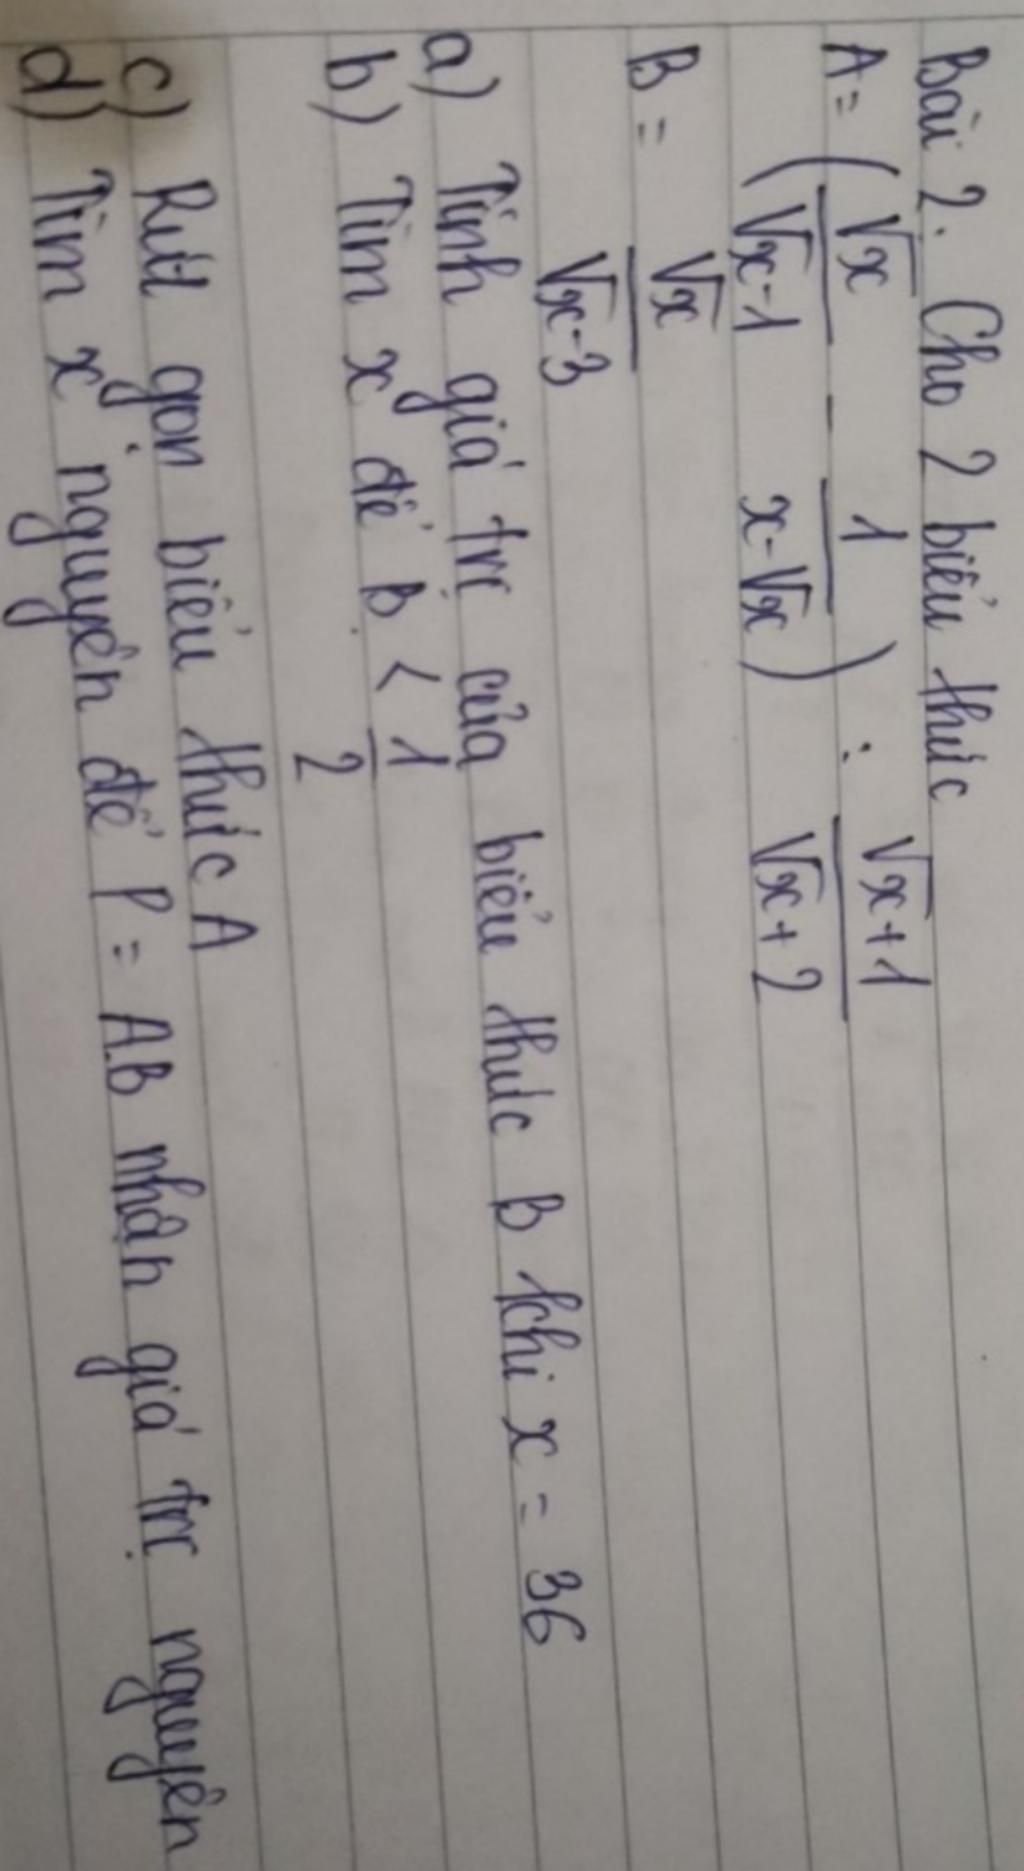 Bài 2. Cho 2 biểu thức
A = (√x/√x-1 - 1/x-√x) : √x+1/√x+2
B = √x/√x-3
a) Tính giá trị của biểu thức B khi x = 36
b) Tìm x để B < 1/2
c) Rút gọn biểu thức A
d) Tìm x nguyên để P = A.B nhận giá trị nguyên